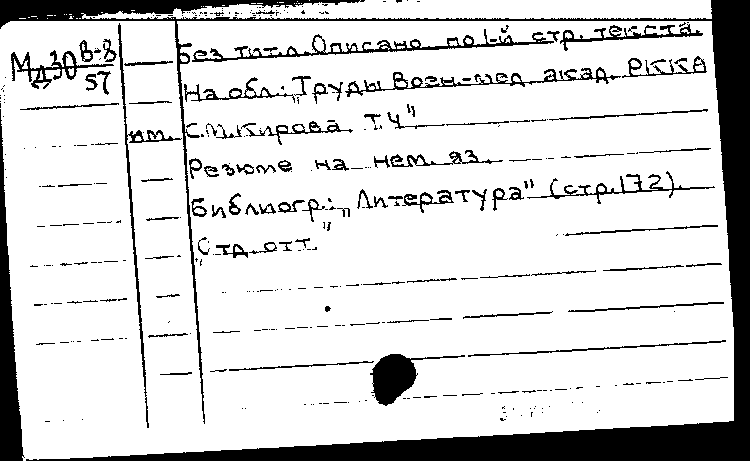 Без титл. Описано по 1-й стр. текста.
Мд30 В-8
57
На обл.: „Труды Воен.-мед. акад. РККА
им. С.М. Кирова. Т. 4"
Резюме на нем. яз.
Библиогр.: „Литература" (стр. 172).
„Отд. отт."